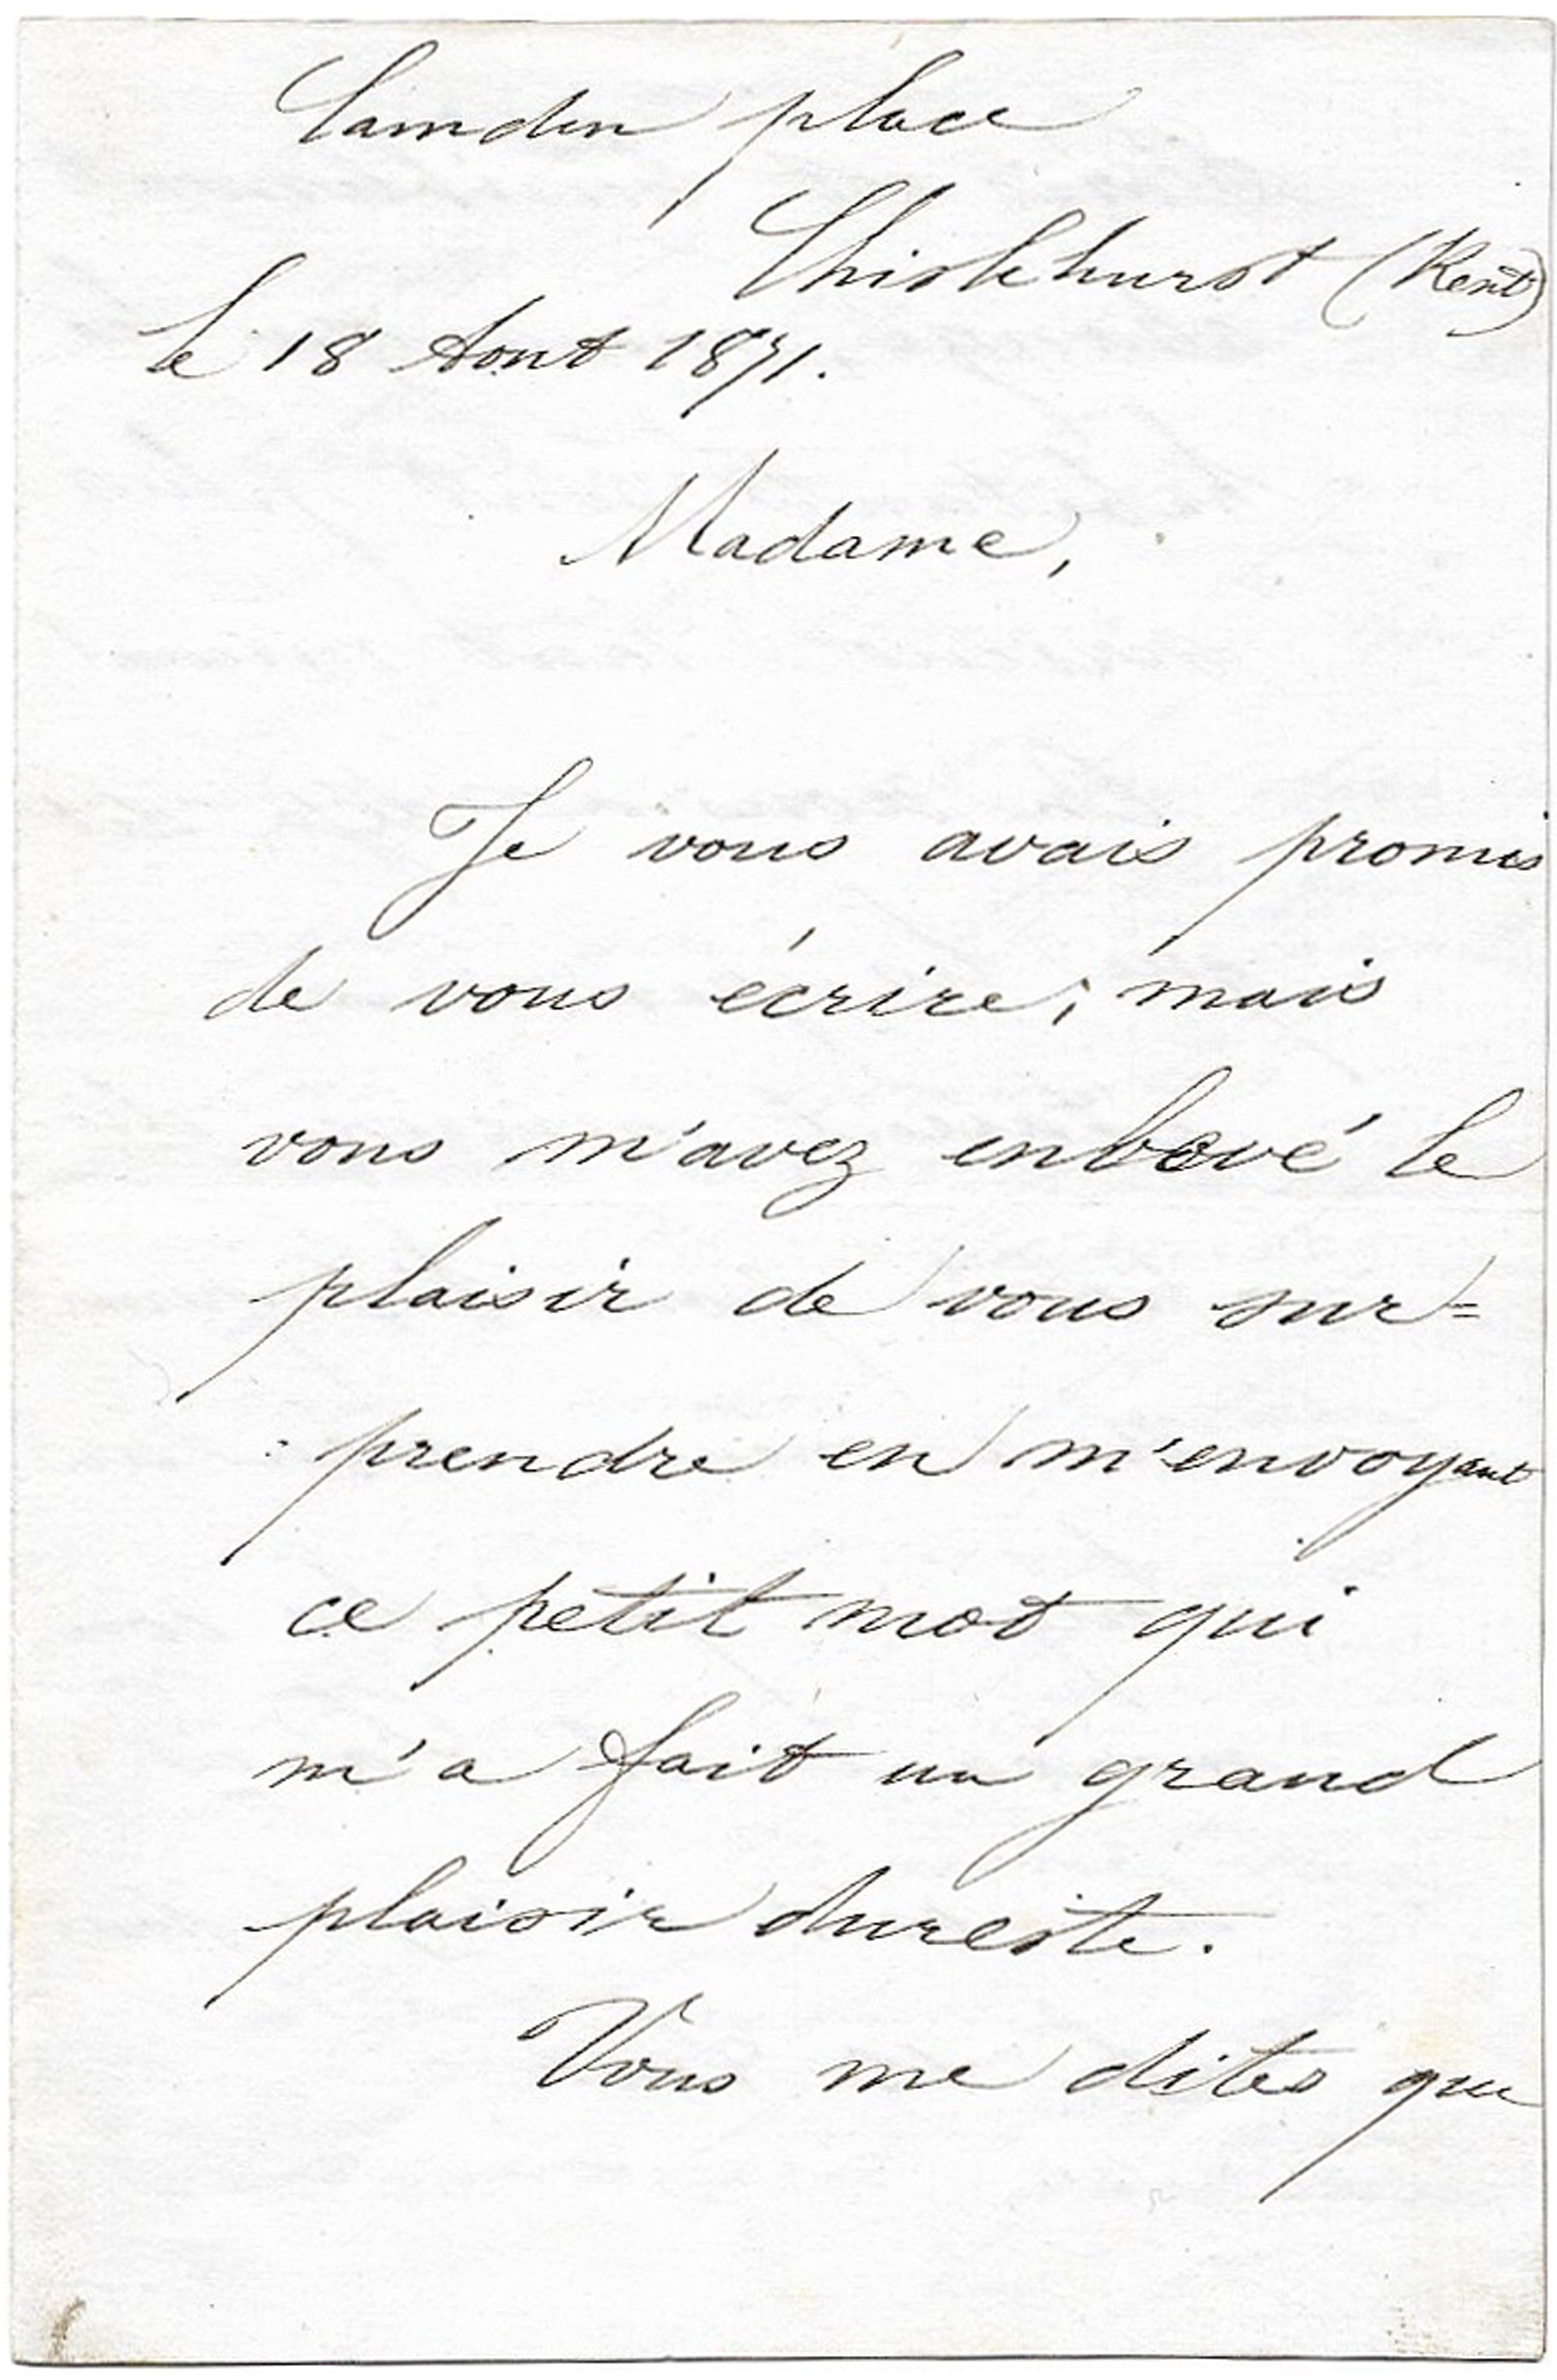 Camden place
Chislehurst (Kent)
le 18 Aout 1871.
Madame,
Je vous avais promis
de vous écrire; mais
vous m'avez enlevé le
plaisir de vous sur=
=prendre en m'envoyant
ce petit mot qui
m'a fait un grand
plaisir dureste.
Vous me dites que